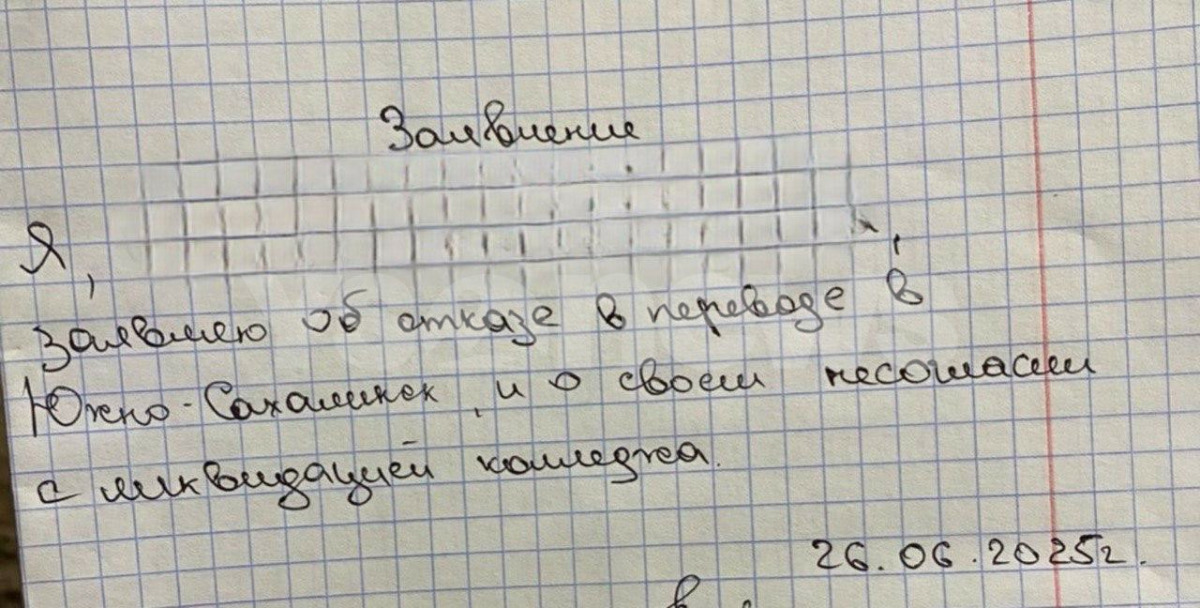 Заявление
Я, ,
заявляю об отказе в переводе в
Южно-Сахалинск, и о своем несогласии
с ликвидацией колледжа.
26.06.2025г.